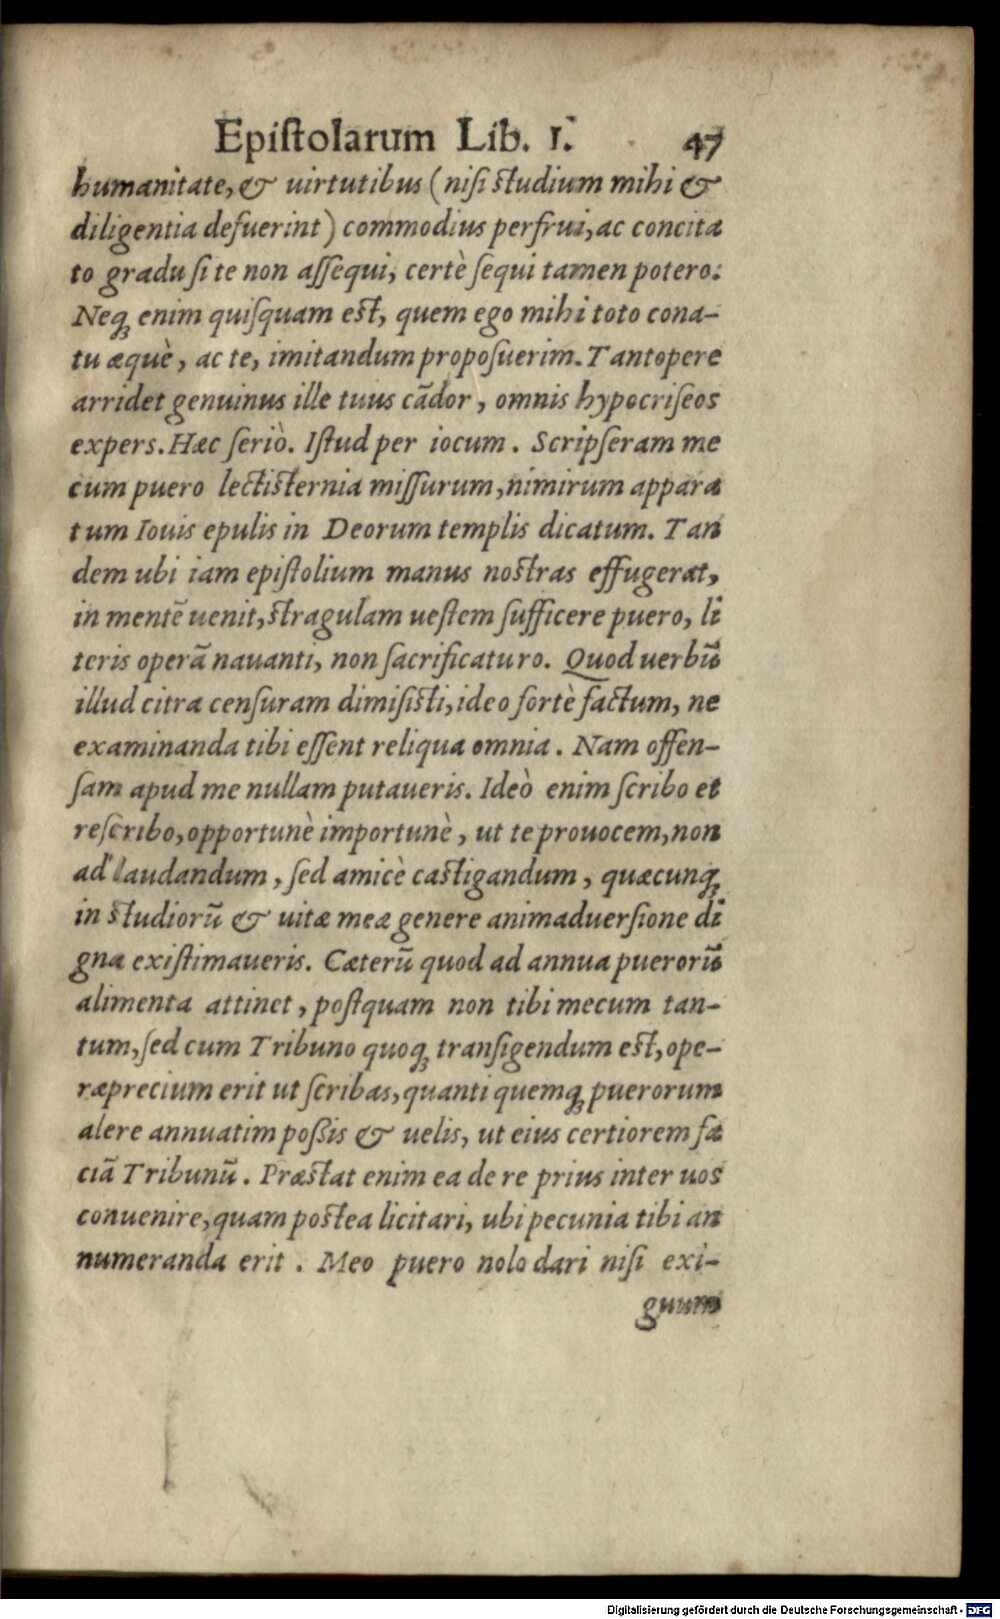 Epiſtolarum Lib. I. 47
humanitate, & uirtutibus (niſi ſtudium mihi &
diligentia defuerint) commodius perfrui, ac concita
to gradu ſi te non aſſequi, certè ſequi tamen potero.
Neq; enim quiſquam eſt, quem ego mihi toto cona-
tu æquè, ac te, imitandum propoſuerim. Tantopere
arridet genuinus ille tuus cãdor, omnis hypocriſeos
expers. Hæc ſeriò. Iſtud per iocum. Scripſeram me
cum puero lectiſternia miſſurum, nimirum appara
tum Iouis epulis in Deorum templis dicatum. Tan
dem ubi iam epiſtolium manus noſtras effugerat,
in mentẽ uenit, ſtragulam ueſtem ſufficere puero, li
teris operã nauanti, non ſacrificaturo. Quod uerbũ
illud citra cenſuram dimiſiſti, ideo fortè factum, ne
examinanda tibi eſſent reliqua omnia. Nam offen-
ſam apud me nullam putaueris. Ideò enim ſcribo et
reſcribo, opportunè importunè, ut te prouocem, non
ad laudandum, ſed amicè caſtigandum, quæcunq;
in ſtudiorũ & uitæ meæ genere animaduerſione di
gna exiſtimaueris. Cæterũ quod ad annua puerorũ
alimenta attinet, poſtquam non tibi mecum tan-
tum, ſed cum Tribuno quoq; tranſigendum eſt, ope-
ræprecium erit ut ſcribas, quanti quemq; puerorum
alere annuatim poſſis & uelis, ut eius certiorem fa
ciã Tribunũ. Præſtat enim ea de re prius inter uos
conuenire, quam poſtea licitari, ubi pecunia tibi an
numeranda erit. Meo puero nolo dari niſi exi-
guum
Digitalisierung gefördert durch die Deutsche Forschungsgemeinschaft - DFG